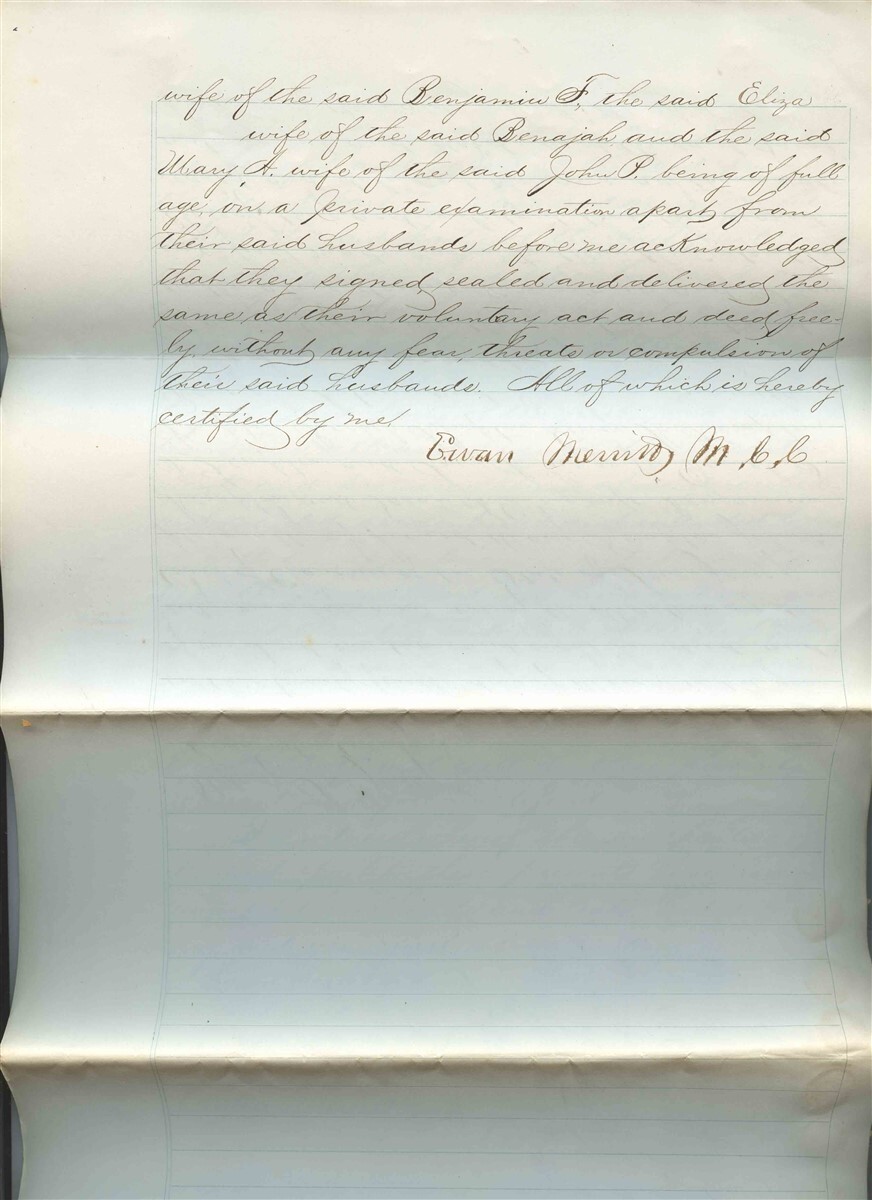 wife of the said Benjamin F, the said Eliza
wife of the said Benajah and the said
Mary A. wife of the said John P. being of full
age, on a private examination apart from
their said husbands before me acknowledged
that they signed sealed and delivered the
same as their voluntary act and deed, free-
ly, without any fear, threats or compulsion of
their said husbands. All of which is hereby
certified by me.
Ewan Merritt M. C. C